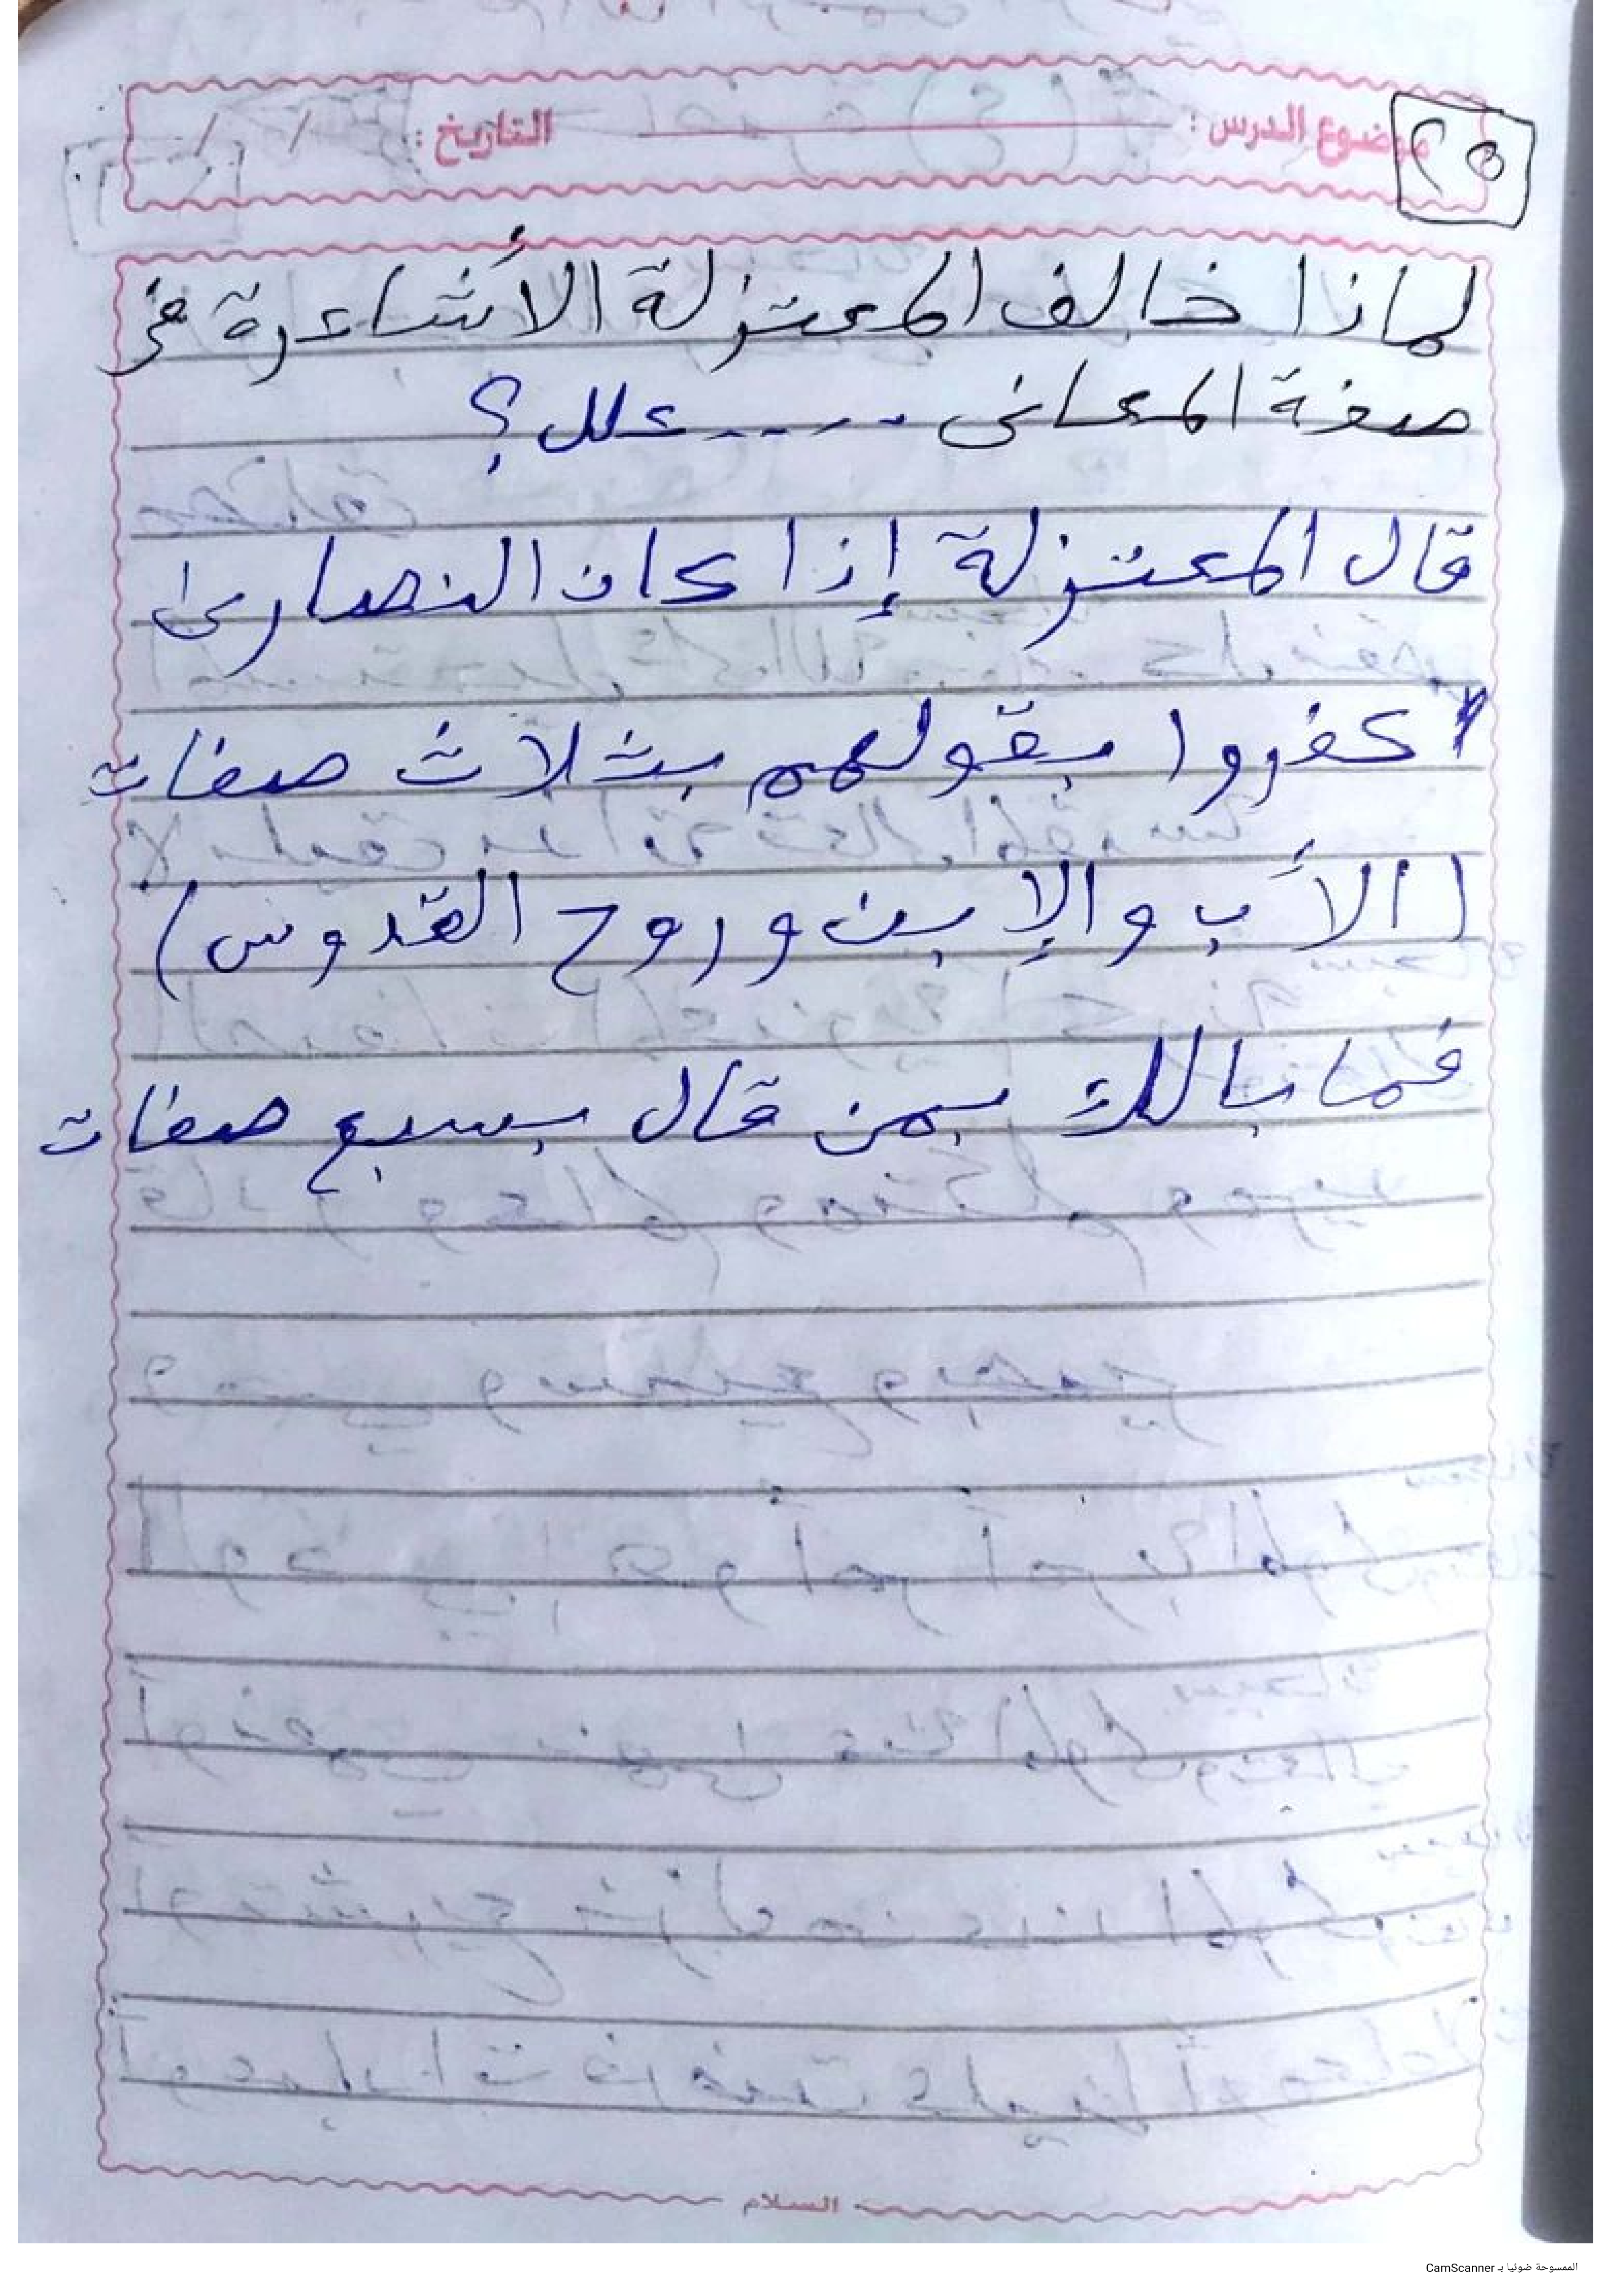 موضوع الدرس : التاريخ : / /
٢٥
لماذا خالف المعتزلة الأشاعرة في
صفة المعاني ----- علل؟
قال المعتزلة إذا كان النصارى
كفروا بقولهم بثلاث صفات
(الأب والإبن وروح القدوس)
فما بالك بمن قال بسبع صفات
السلام
الممسوحة ضوئيا بـ CamScanner